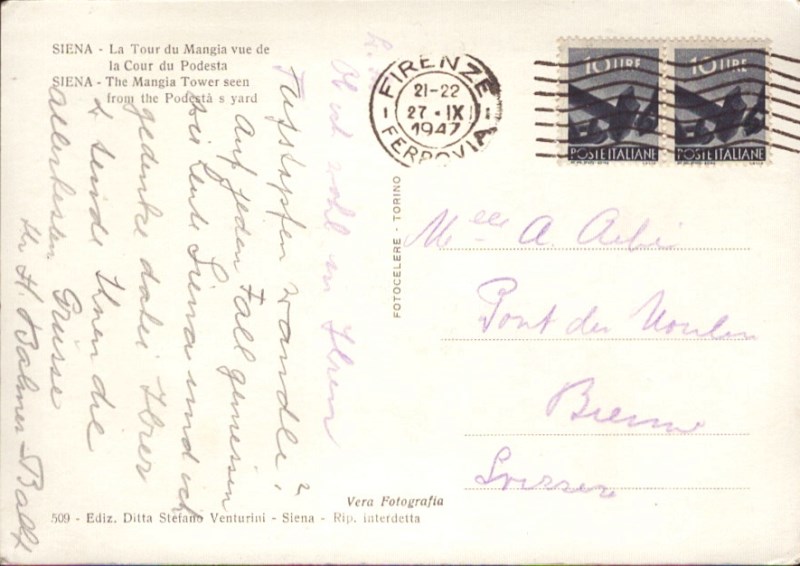 SIENA - La Tour du Mangia vue de
la Cour du Podesta
SIENA - The Mangia Tower seen
from the Podestà s yard
FIRENZE
21-22
27 · IX
1947
FERROVIA
10 LIRE
POSTE ITALIANE
10 LIRE
POSTE ITALIANE
Ob ich wohl in Ihren
Fußstapfen wandle?
Auf jeden Fall geniessen
wir heute Siena und ich
gedenke dabei Ihrer
& sende Ihnen die
allerbesten Grüsse
Ihr H. Balmer
FOTOCELERE - TORINO
Melle A. Aebi
Pont du Moulin
Bienne
Svizzera
Vera Fotografia
509 - Ediz. Ditta Stefano Venturini - Siena - Rip. interdetta